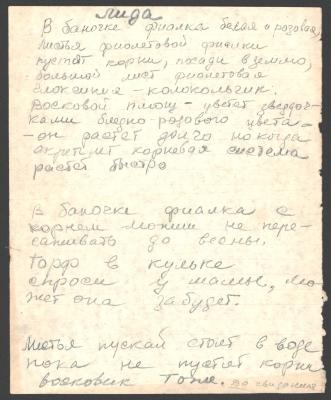 Лида
В баночке фиалка белая и розовая,
Листья фиолетовой фиялки
пустят корни, посади в землю,
большой лист фиолетовая
глоксения - колокольчик.
Восковой плющ - цветет звездоч-
ками бледно-розового цвета -
- он растет долго но когда
окрепнит корневая система
растет быстро
В баночке фиалка с
корнем можно не пере-
саживать до весны.
Торф в кульке
спроси у мамы, мо-
жет она забудет.
Листья пускай стоят в воде
пока не пустят корни
восковик тоже. До свидания